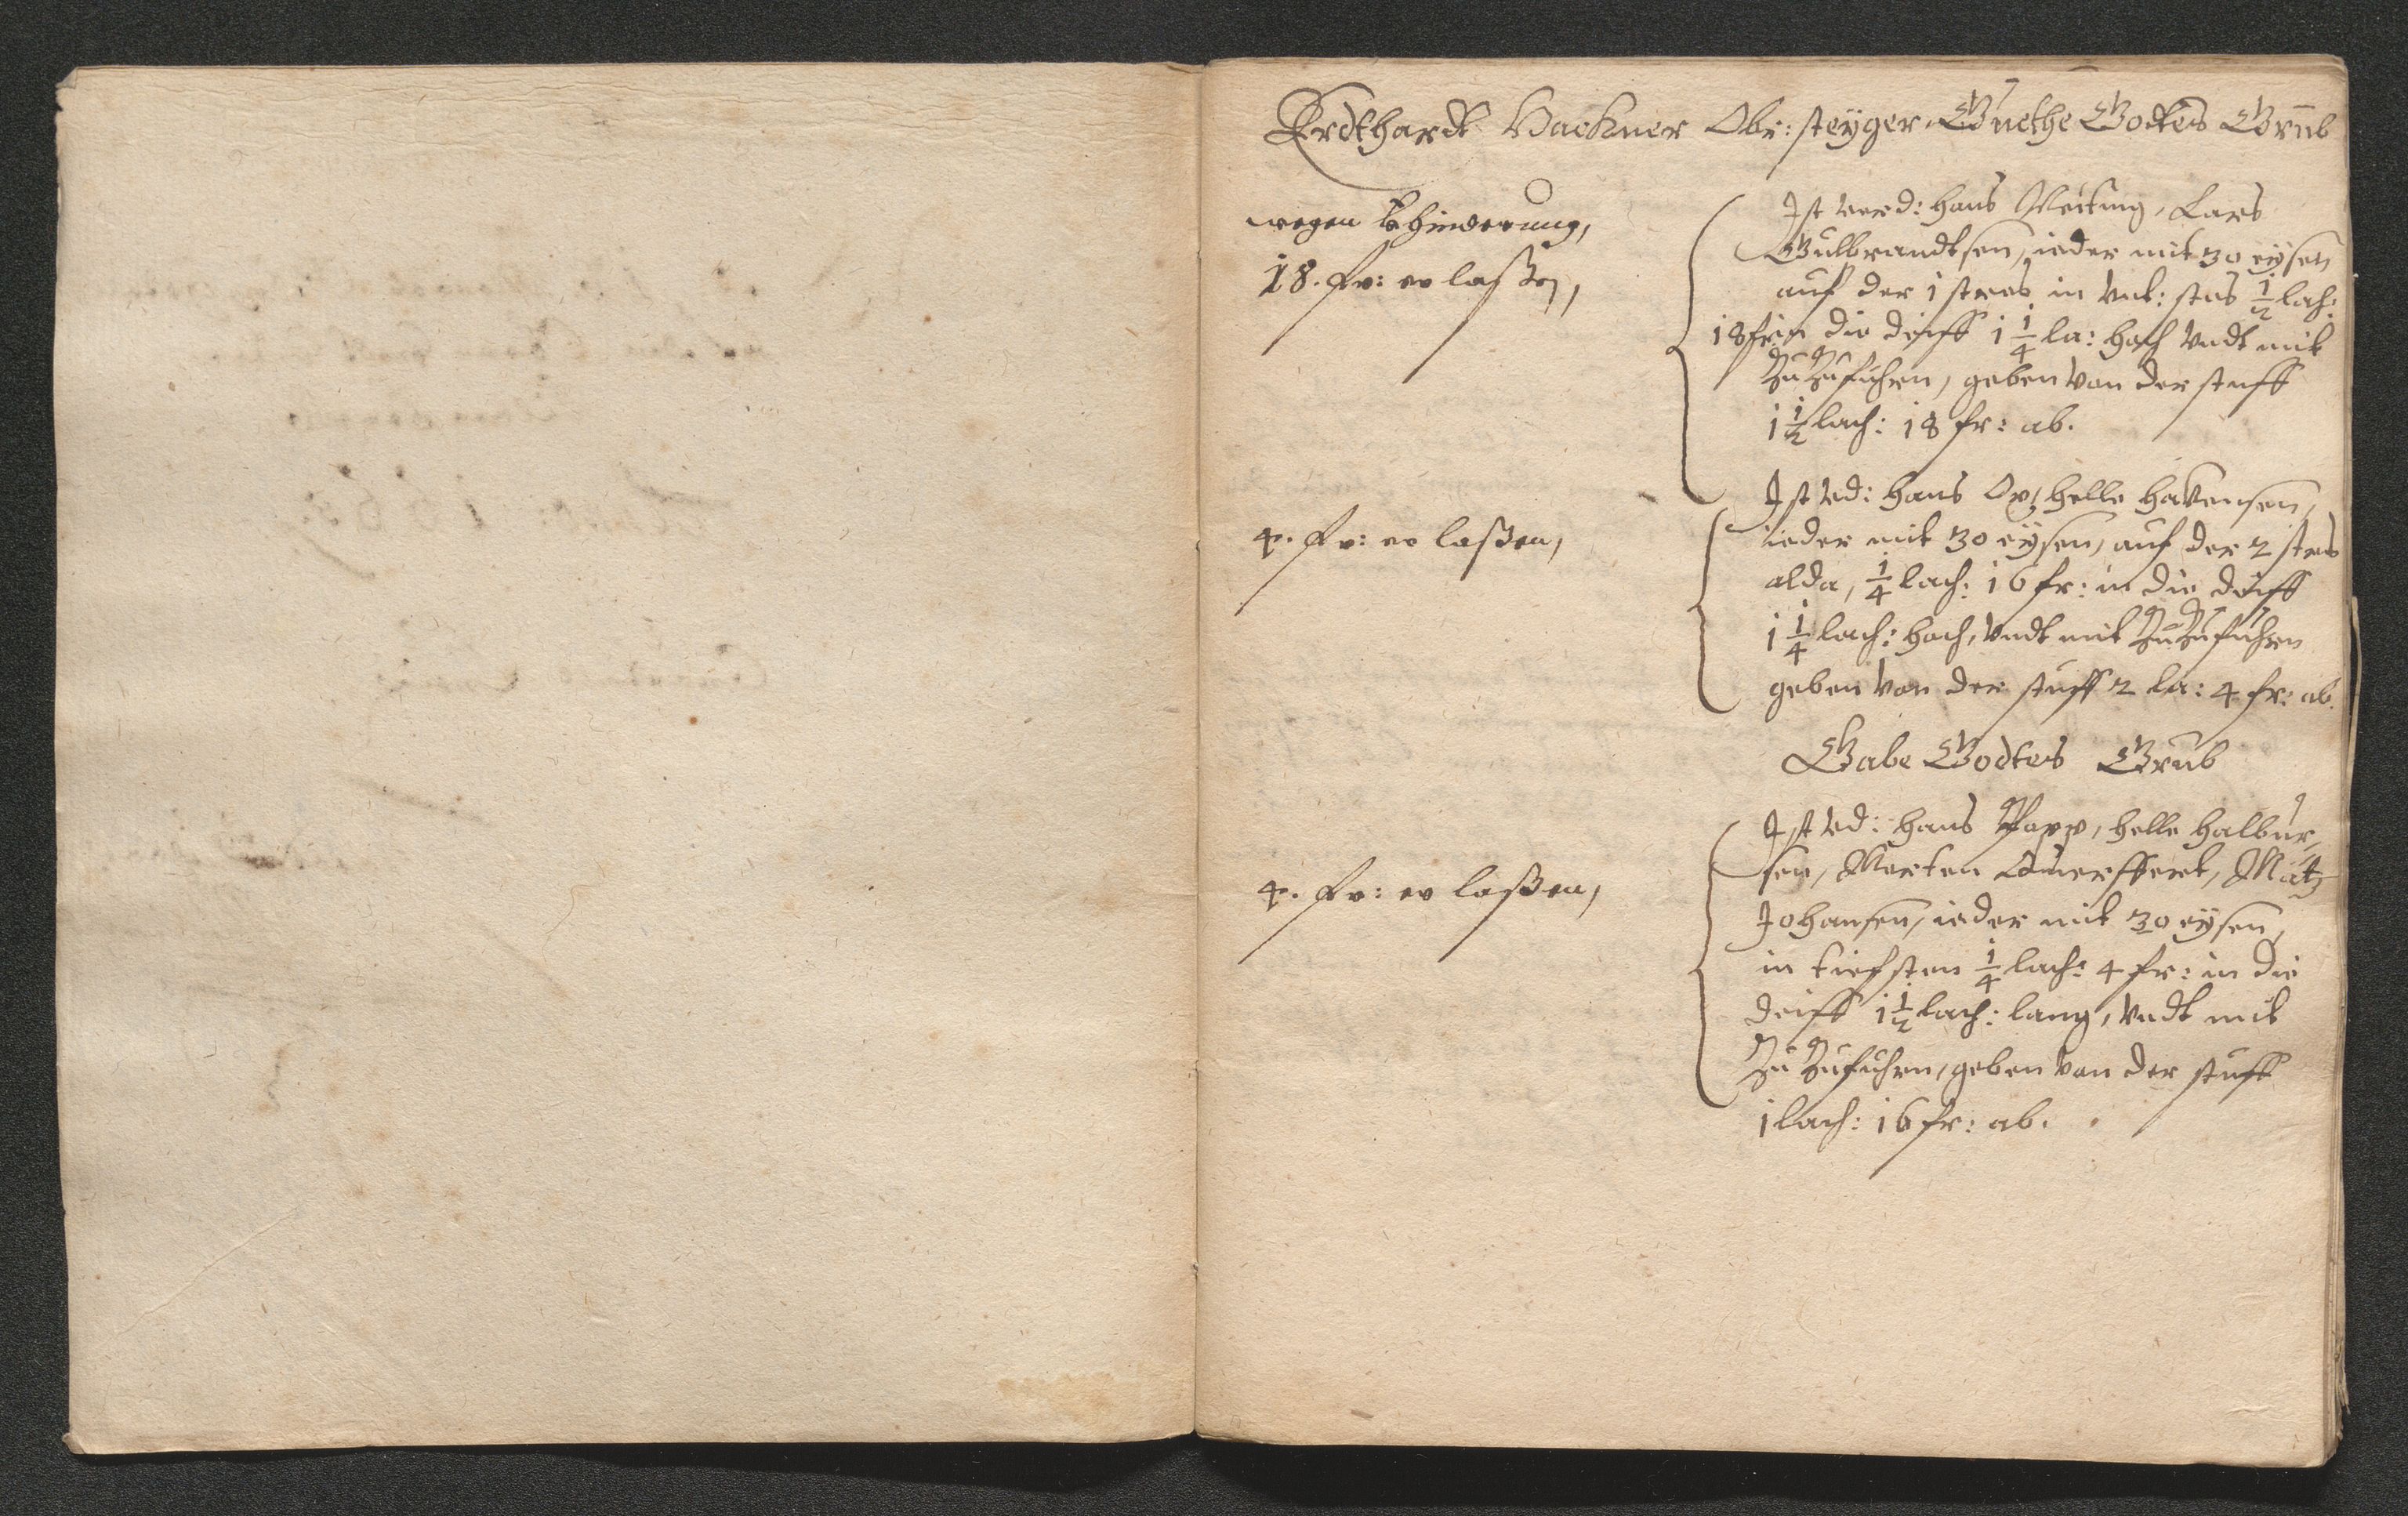 Erdthardt Hackner Obr: steÿger, Gŭethe Godtes Grŭb
wegen behinderung,
18. fr: er laßen,
Ist verd: Hans Meising, Lars
Gulbrandtsen, ieder mit 30 eÿsen
auf der 1 stras in Vnt: stas ½ lach:
18 fr: in die deiff 1¼ la: hoch Vndt mit
Zu Zufuhren, geben von der stuff
1½ lach: 18 fr: ab.
4. fr: er laßen,
Ist Vd: Hans Ox, Helle Hakensen,
ieder mit 30 eÿsen, auf der 2 stras
alda, ¼ lach: 16 fr: in die deiff
1¼ lach: hoch, Vndt mit Zu Zufuhren
geben von der stuff 2 la: 4 fr: ab.
Gabe Godtes Grŭb
4. fr: er laßen,
Ist Vd: Hans Papp, Helle Halbur,,
sen, Marten Querffert, Matz
Johansen, ieder mit 30 eÿsen,
in tiefsten ¼ lach: 4 fr: in die
deiff 1½ lach: lang, Vndt mit
Zu Zufuhren, geben von der stuff
1 lach: 16 fr: ab.